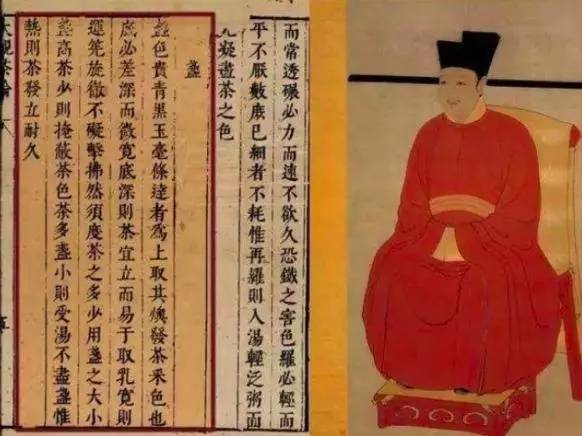 而常透碾必力而速不欲久恐鐵之害色羅必輕而
平不厭數庶已細者不耗惟再羅則入湯輕泛粥面
光凝盡茶之色
盞
盞色貴青黑玉毫條達者為上取其煥發茶采色也
底必差深而微寬底深則茶宜立而易于取乳寬則
運筅旋徹不礙擊拂然須度茶之多少用盞之大小
盞高茶少則掩蔽茶色茶多盞小則受湯不盡盞惟
熱則茶發立耐久
大觀茶論
五